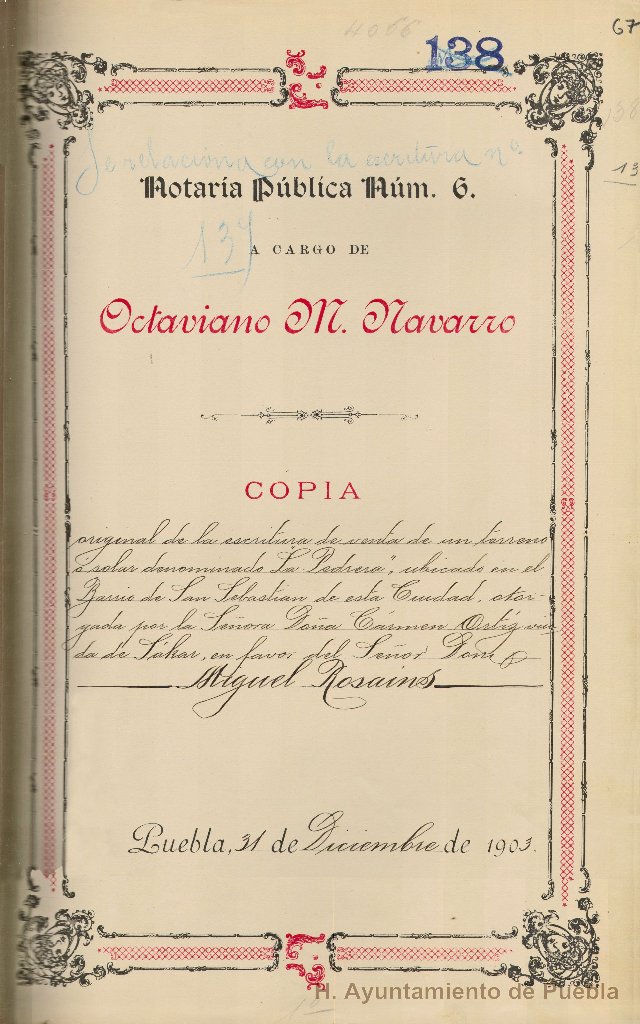 4066
67
138
Se relaciona con la escritura nº
137
13
Notaría Pública Núm. 6.
A CARGO DE
Octaviano M. Navarro
COPIA
original de la escritura de venta de un terreno
ó solar denominado "La Pedrera", ubicado en el
Barrio de San Sebastian de esta Ciudad, otor-
gada por la Señora Doña Cármen Ortiz viu-
da de Sakar, en favor del Señor Don
Miguel Rosains
Puebla, 31 de Diciembre de 1903.
H. Ayuntamiento de Puebla